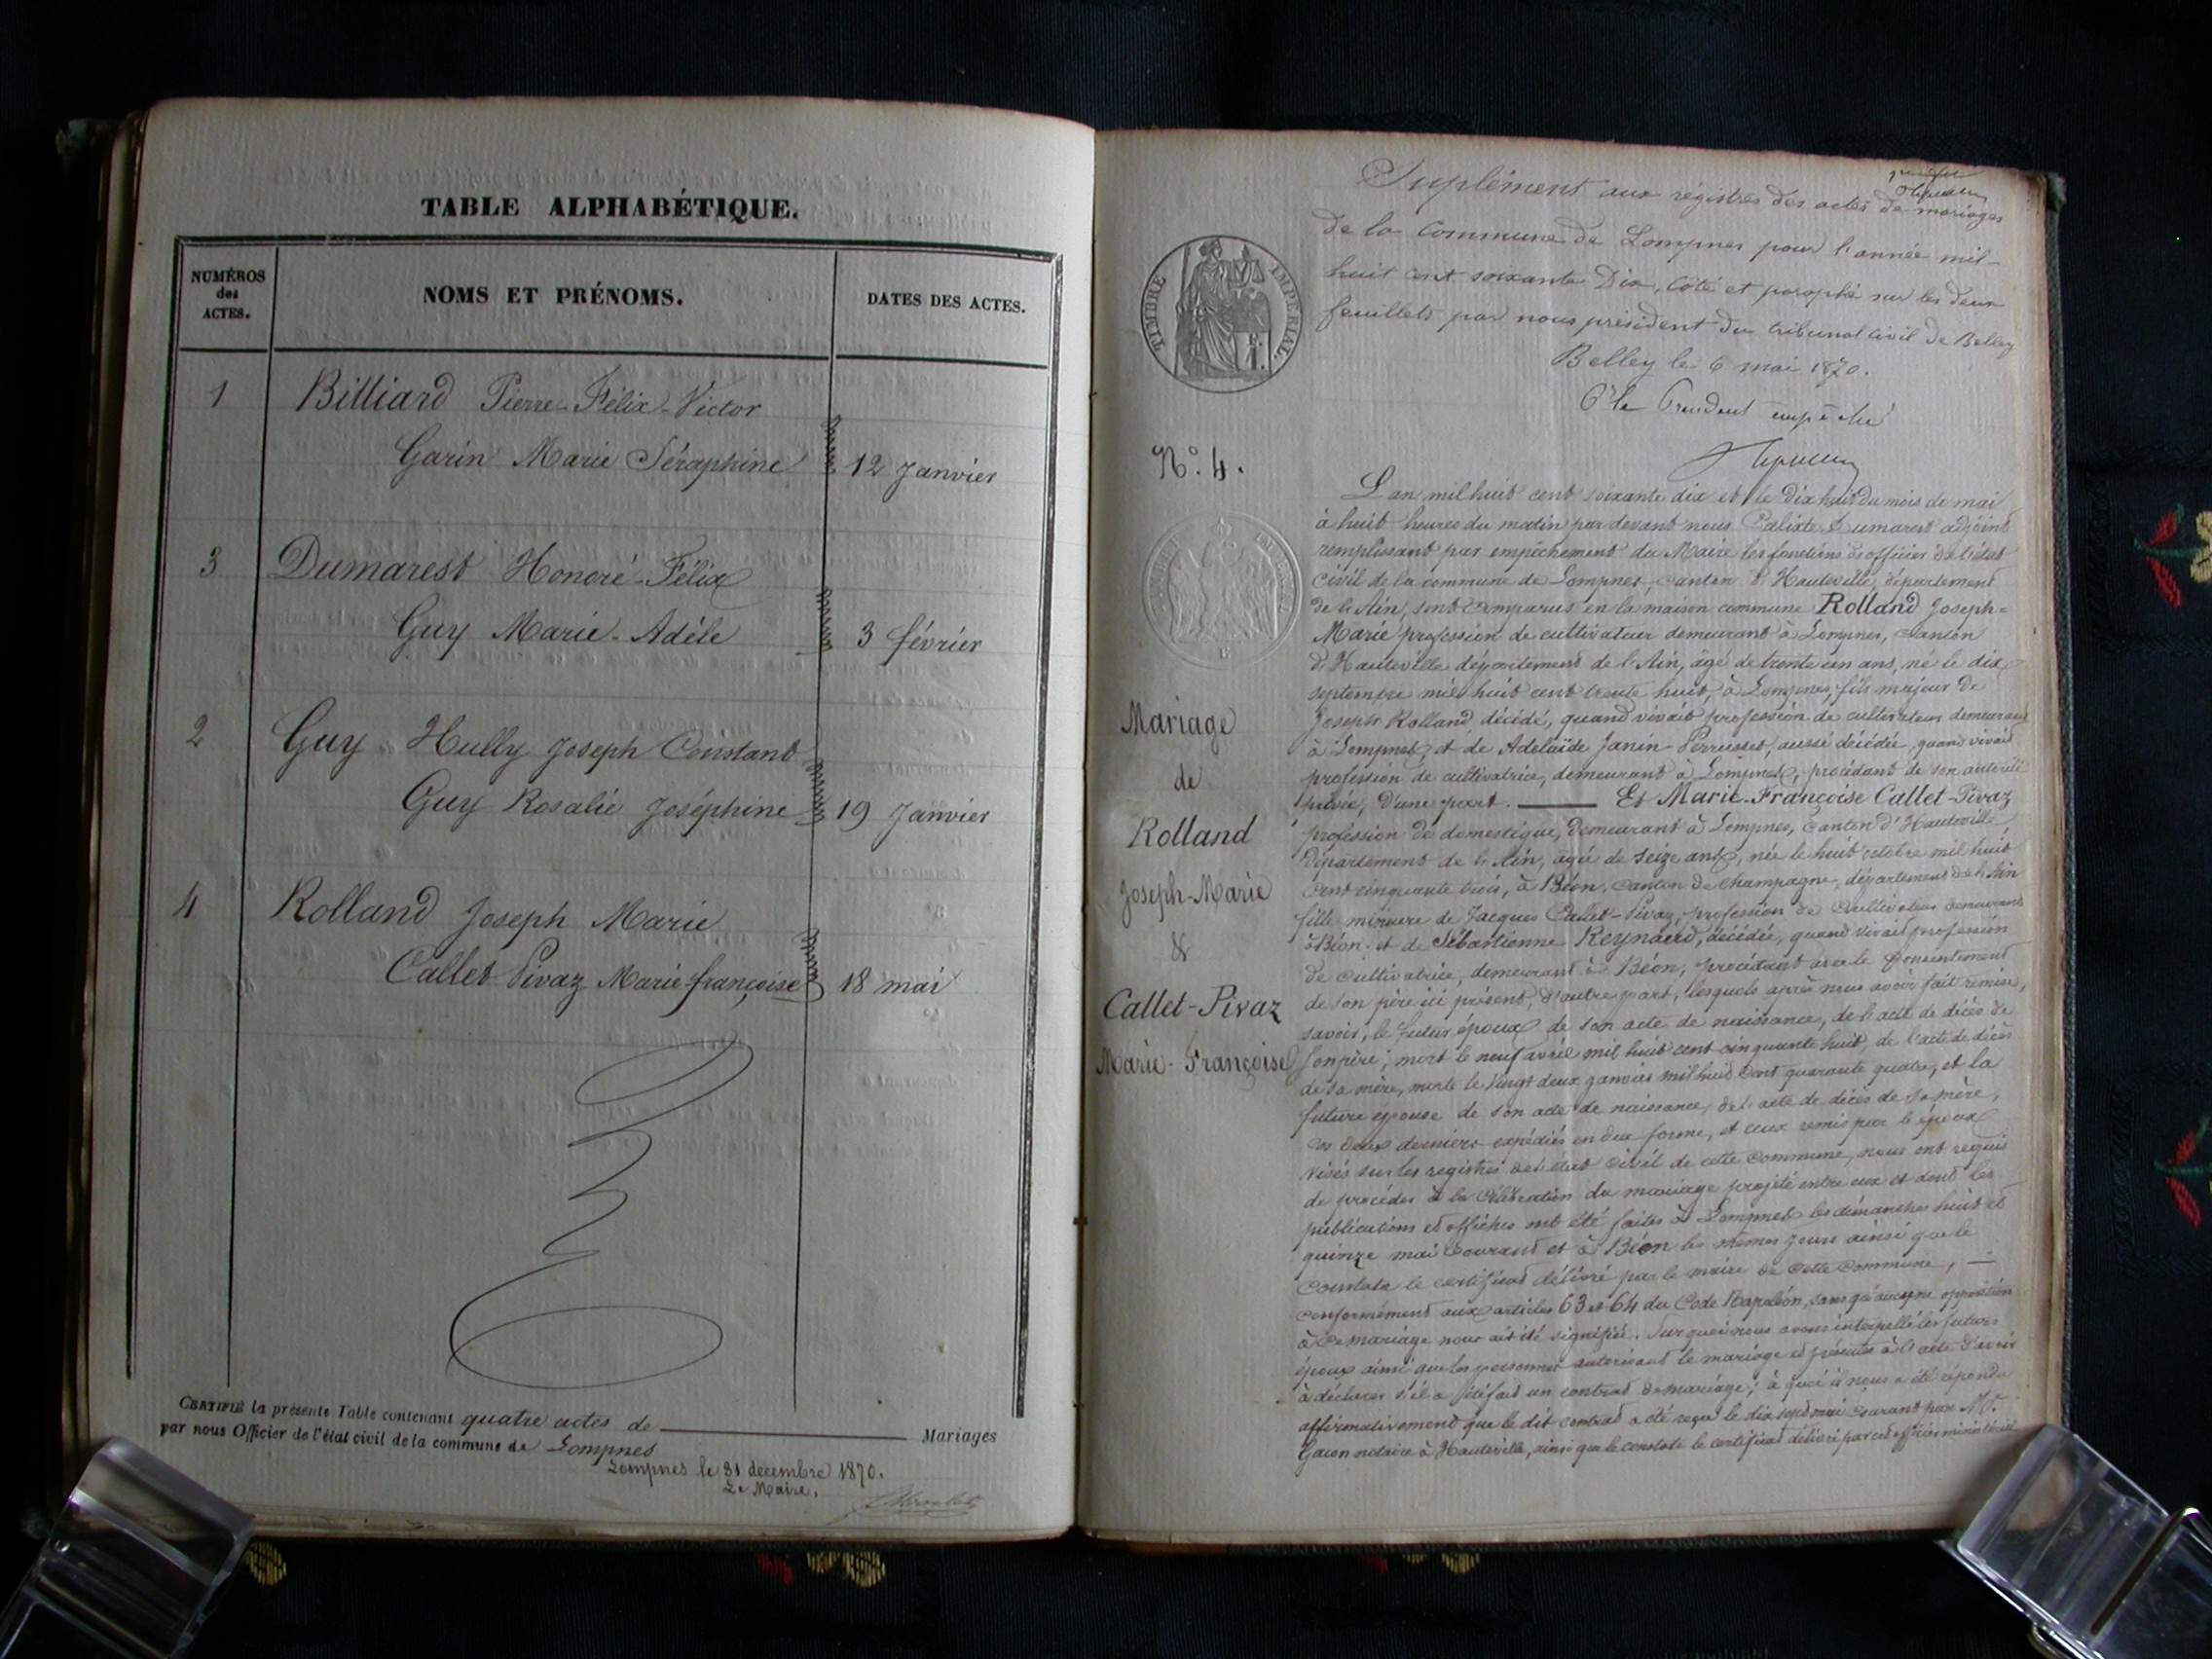 TABLE ALPHABÉTIQUE.
NUMÉROS
des
ACTES.
NOMS ET PRÉNOMS.
DATES DES ACTES.
1 Billiard Pierre-Félix-Victor
Garin Marie Séraphine 12 Janvier
3 Dumarest Honoré-Félix
Guy Marie-Adèle 3 février
2 Guy Hully Joseph Constant
Guy Rosalie Joséphine 19 Janvier
4 Rolland Joseph Marie
Callet Pivaz Marie françoise 18 mai
CERTIFIÉ la présente Table contenant quatre actes de Mariages
par nous Officier de l'état civil de la commune de Lompnes
Lompnes le 31 decembre 1870.
Le Maire,
Suplément aux régistres des actes de mariages
de la Commune de Lompnes pour l'année mil
huit cent soixante Dix, Côté et paraphé sur les deux
feuillets par nous président du tribunal civil de Belley
Belley le 6 mai 1870.
Pr le Président empêché
TIMBRE IMPÉRIAL.
N°. 4.
Mariage
de
Rolland
Joseph-Marie
&
Callet-Pivaz
Marie-Françoise
L'an mil huit cent soixante dix et le Dix huit du mois de mai
à huit heures du matin par devant nous Calixte Dumarest adjoint
remplissant par empêchement du Maire les fonctions d'officier de l'état
civil de la commune de Lompnes canton d'Hauteville, département
de l'Ain, sont comparus en la maison commune Rolland Joseph-
Marie profession de cultivateur demeurant à Lompnes, canton
d'Hauteville département de l'Ain, âgé de trente un ans, né le dix
septembre mil huit cent trente huit, à Lompnes, fils majeur de
Joseph Rolland décédé, quand vivait profession de cultivateur demeurant
à Lompnes, et de Adelaïde Janin-Perrusset, aussi décédée, quand vivait
profession de cultivatrice, demeurant à Lompnes, procédant de son autorité
privée, D'une part. Et Marie-Françoise Callet-Pivaz
profession de domestique, demeurant à Lompnes, canton d'Hauteville
département de l'Ain, âgée de seize ans, née le huit octobre mil huit
cent cinquante trois, à Béon, canton de Champagne, département de l'Ain
fille mineure de Jacques Callet-Pivaz, profession de Cultivateur demeurant
à Béon, et de Sébastienne Reynaud, décédée, quand vivait profession
de cultivatrice, demeurant à Béon, procédant avec le Consentement
de son père ici présent, d'autre part, lesquels après nous avoir fait remise,
savoir, le futur époux de son acte de naissance, de l'acte de décès de
son père; mort le neuf avril mil huit cent cinquante huit, de l'acte de décès
de sa mère, morte le Vingt deux janvier mil huit cent quarante quatre, et la
future épouse de son acte de naissance, de l'acte de décès de sa mère,
ces deux derniers expédiés en due forme, et ceux remis par l'époux
Visés sur les registres de l'état civil de cette Commune, nous ont requis
de procéder à la Célébration du mariage projeté entre eux et dont les
publications et affiches ont été faites à Lompnes les dimanches huit et
quinze mai Courant et à Béon les mêmes jours ainsi que le
Constate le certificat délivré par le maire de cette Commune,
conformément aux articles 63 et 64 du Code Napoléon, sans qu'aucune opposition
à ce mariage nous ait été signifiée. Sur quoi nous avons interpellé les futurs
époux ainsi que les personnes autorisant le mariage et présentes à l'acte d'avoir
à déclarer s'il a été fait un contrat de mariage; à quoi il nous a été répondu
affirmativement que le dit contrat a été reçu le dix sept mai courant par M.
notaire à Hauteville, ainsi que le constate le certificat délivré par cet officier ministériel